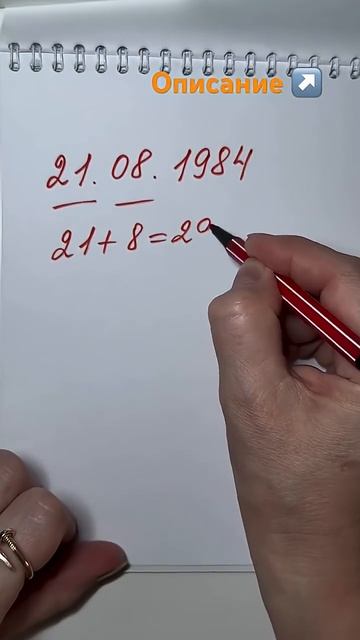 Описание
21. 08. 1984
21+8=29